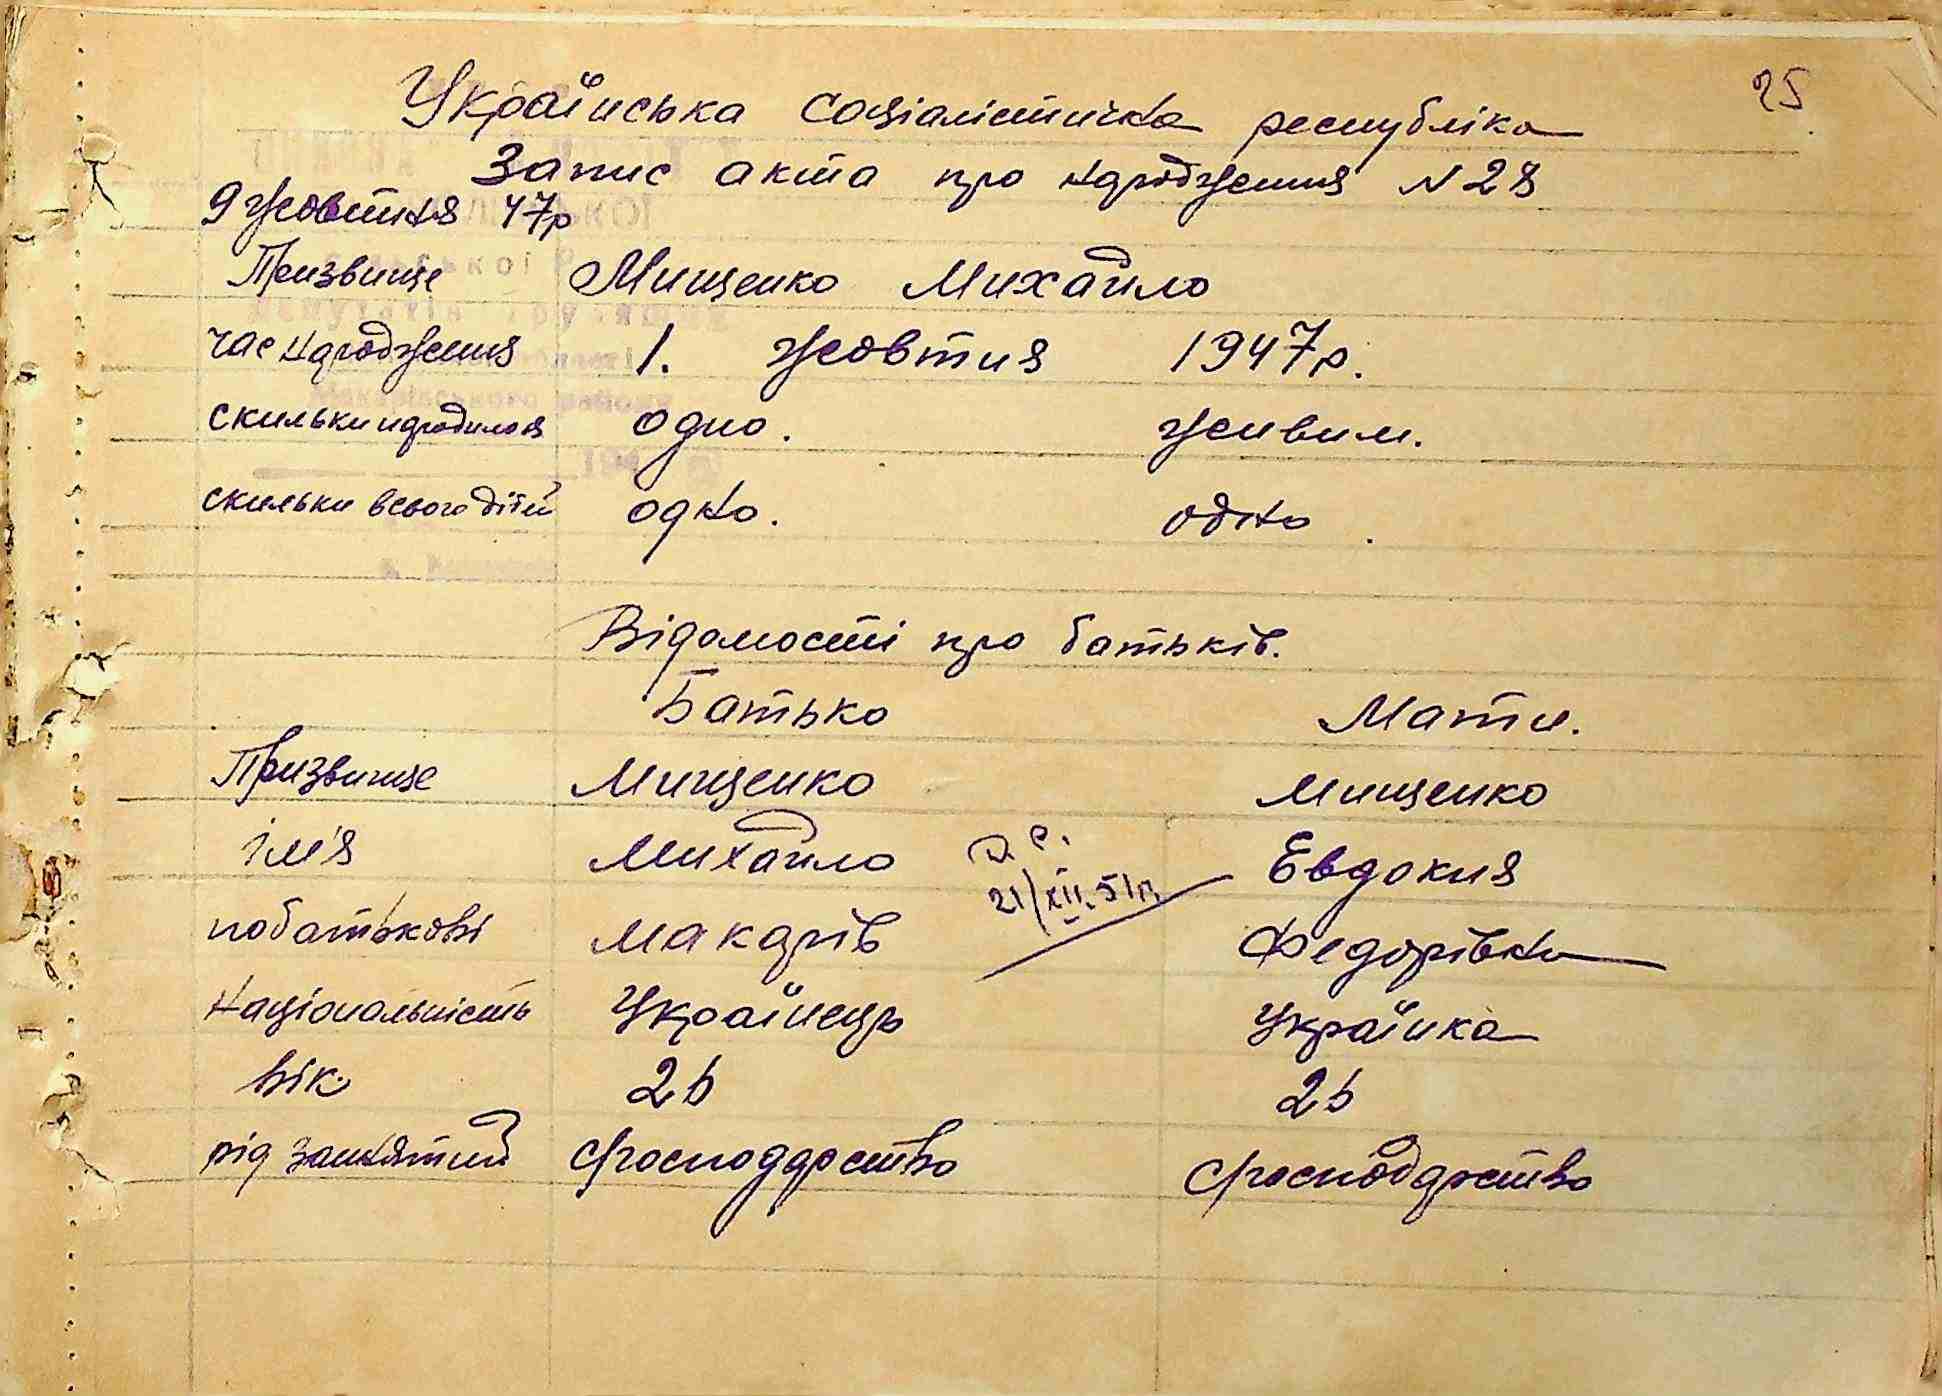 25
Українська соціалістична республіка
Запис акта про народження N 28
9 жовтня 47р
Призвище Мищенко Михайло
час народження 1. жовтня 1947р.
скильки народилося одно. живим.
скильки всього дітей одно. одно
Відомості про батьків.
Батько Мати.
Призвище Мищенко Мищенко
ім'я Михайло Евдокия
21/XII.51р.
побатькові Макарів Федорівна
Національність Українець Українка
вік 26 26
рід заняттий Господарство Господарство